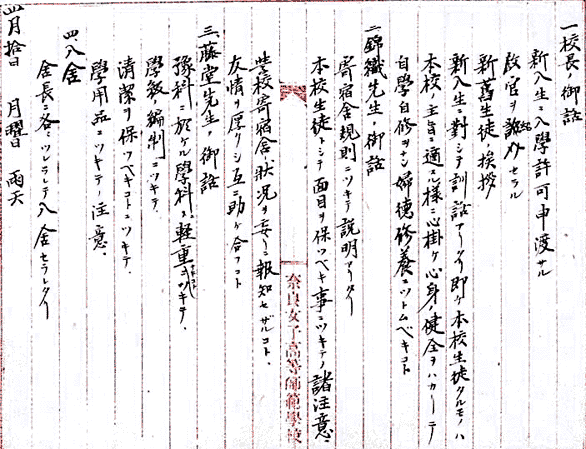 一校長ノ御話
新入生ニ入學許可申渡サル
教官ヲ紹介セラル
新舊生徒ノ挨拶
新入生ニ對シテ訓話アータリ即ケ本校生徒タルモノハ
本校ノ主旨ニ適スル樣ニ心掛ケ心身ノ健全ヲハカーテ
自學自修ヲナシ婦德修養ニツトムベキコト
二錦織先生ノ御話
寄宿舍規則ニツキテ説明アータリ
本校生徒トシテ面目ヲ保ツベキ事ニツキテノ諸注意、
奈良女子高等師範學校
學校寄宿舍ノ狀況ヲ妄リニ報知セザルコト、
友情ヲ厚クシ互ニ助ケ合フコト
三、藤堂先生ノ御話
豫科ニ於ケル學科ノ輕重ニツキテ、
學級ノ編制ニツキテ
清潔ヲ保ツベキコトニツキテ、
學用品ニツキテノ注意、
四入舍
舍長ニ各々ツレラレテ入舍セラレタリ
四月拾日 月曜日 雨天